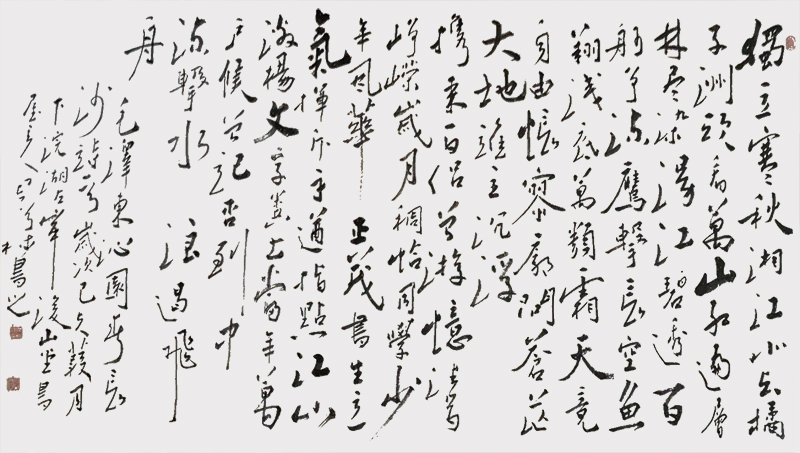 獨立寒秋湘江北去橘
子洲頭看萬山紅遍層
林盡染漫江碧透百
舸爭流鷹擊長空魚
翔淺底萬類霜天竟
自由悵寥廓問蒼茫
大地誰主沉浮
攜來百侣曾游憶往昔
崢嶸歲月稠恰同學少
年風華正茂書生意
氣揮斥方遒指點江山
激揚文字糞土當年萬
户侯曾記否到中
流擊水浪遏飛
舟
毛澤東沁園春長
沙 歲次己亥 月
下浣湖上 山堂書